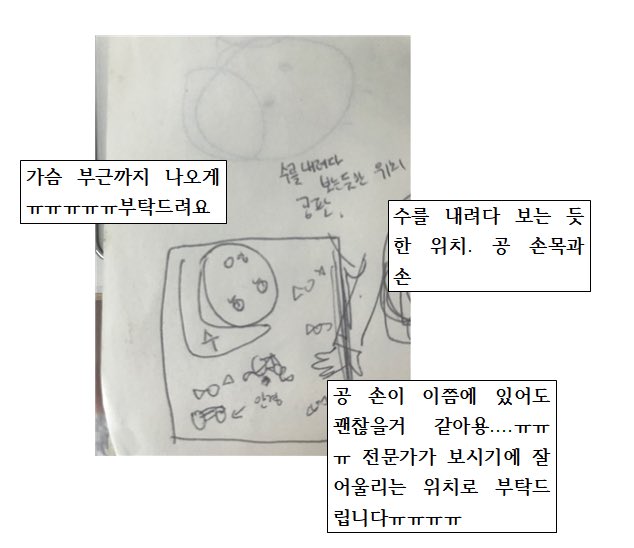 가슴 부근까지 나오게
ㅠㅠㅠㅠㅠ부탁드려요
수를 내려다
보는듯한 위치
공판.
수를 내려다 보는 듯
한 위치. 공 손목과
손
수
안경
공 손이 이쯤에 있어도
괜찮을거 같아용....ㅠㅠ
ㅠ 전문가가 보시기에 잘
어울리는 위치로 부탁드
립니다ㅠㅠㅠㅠ